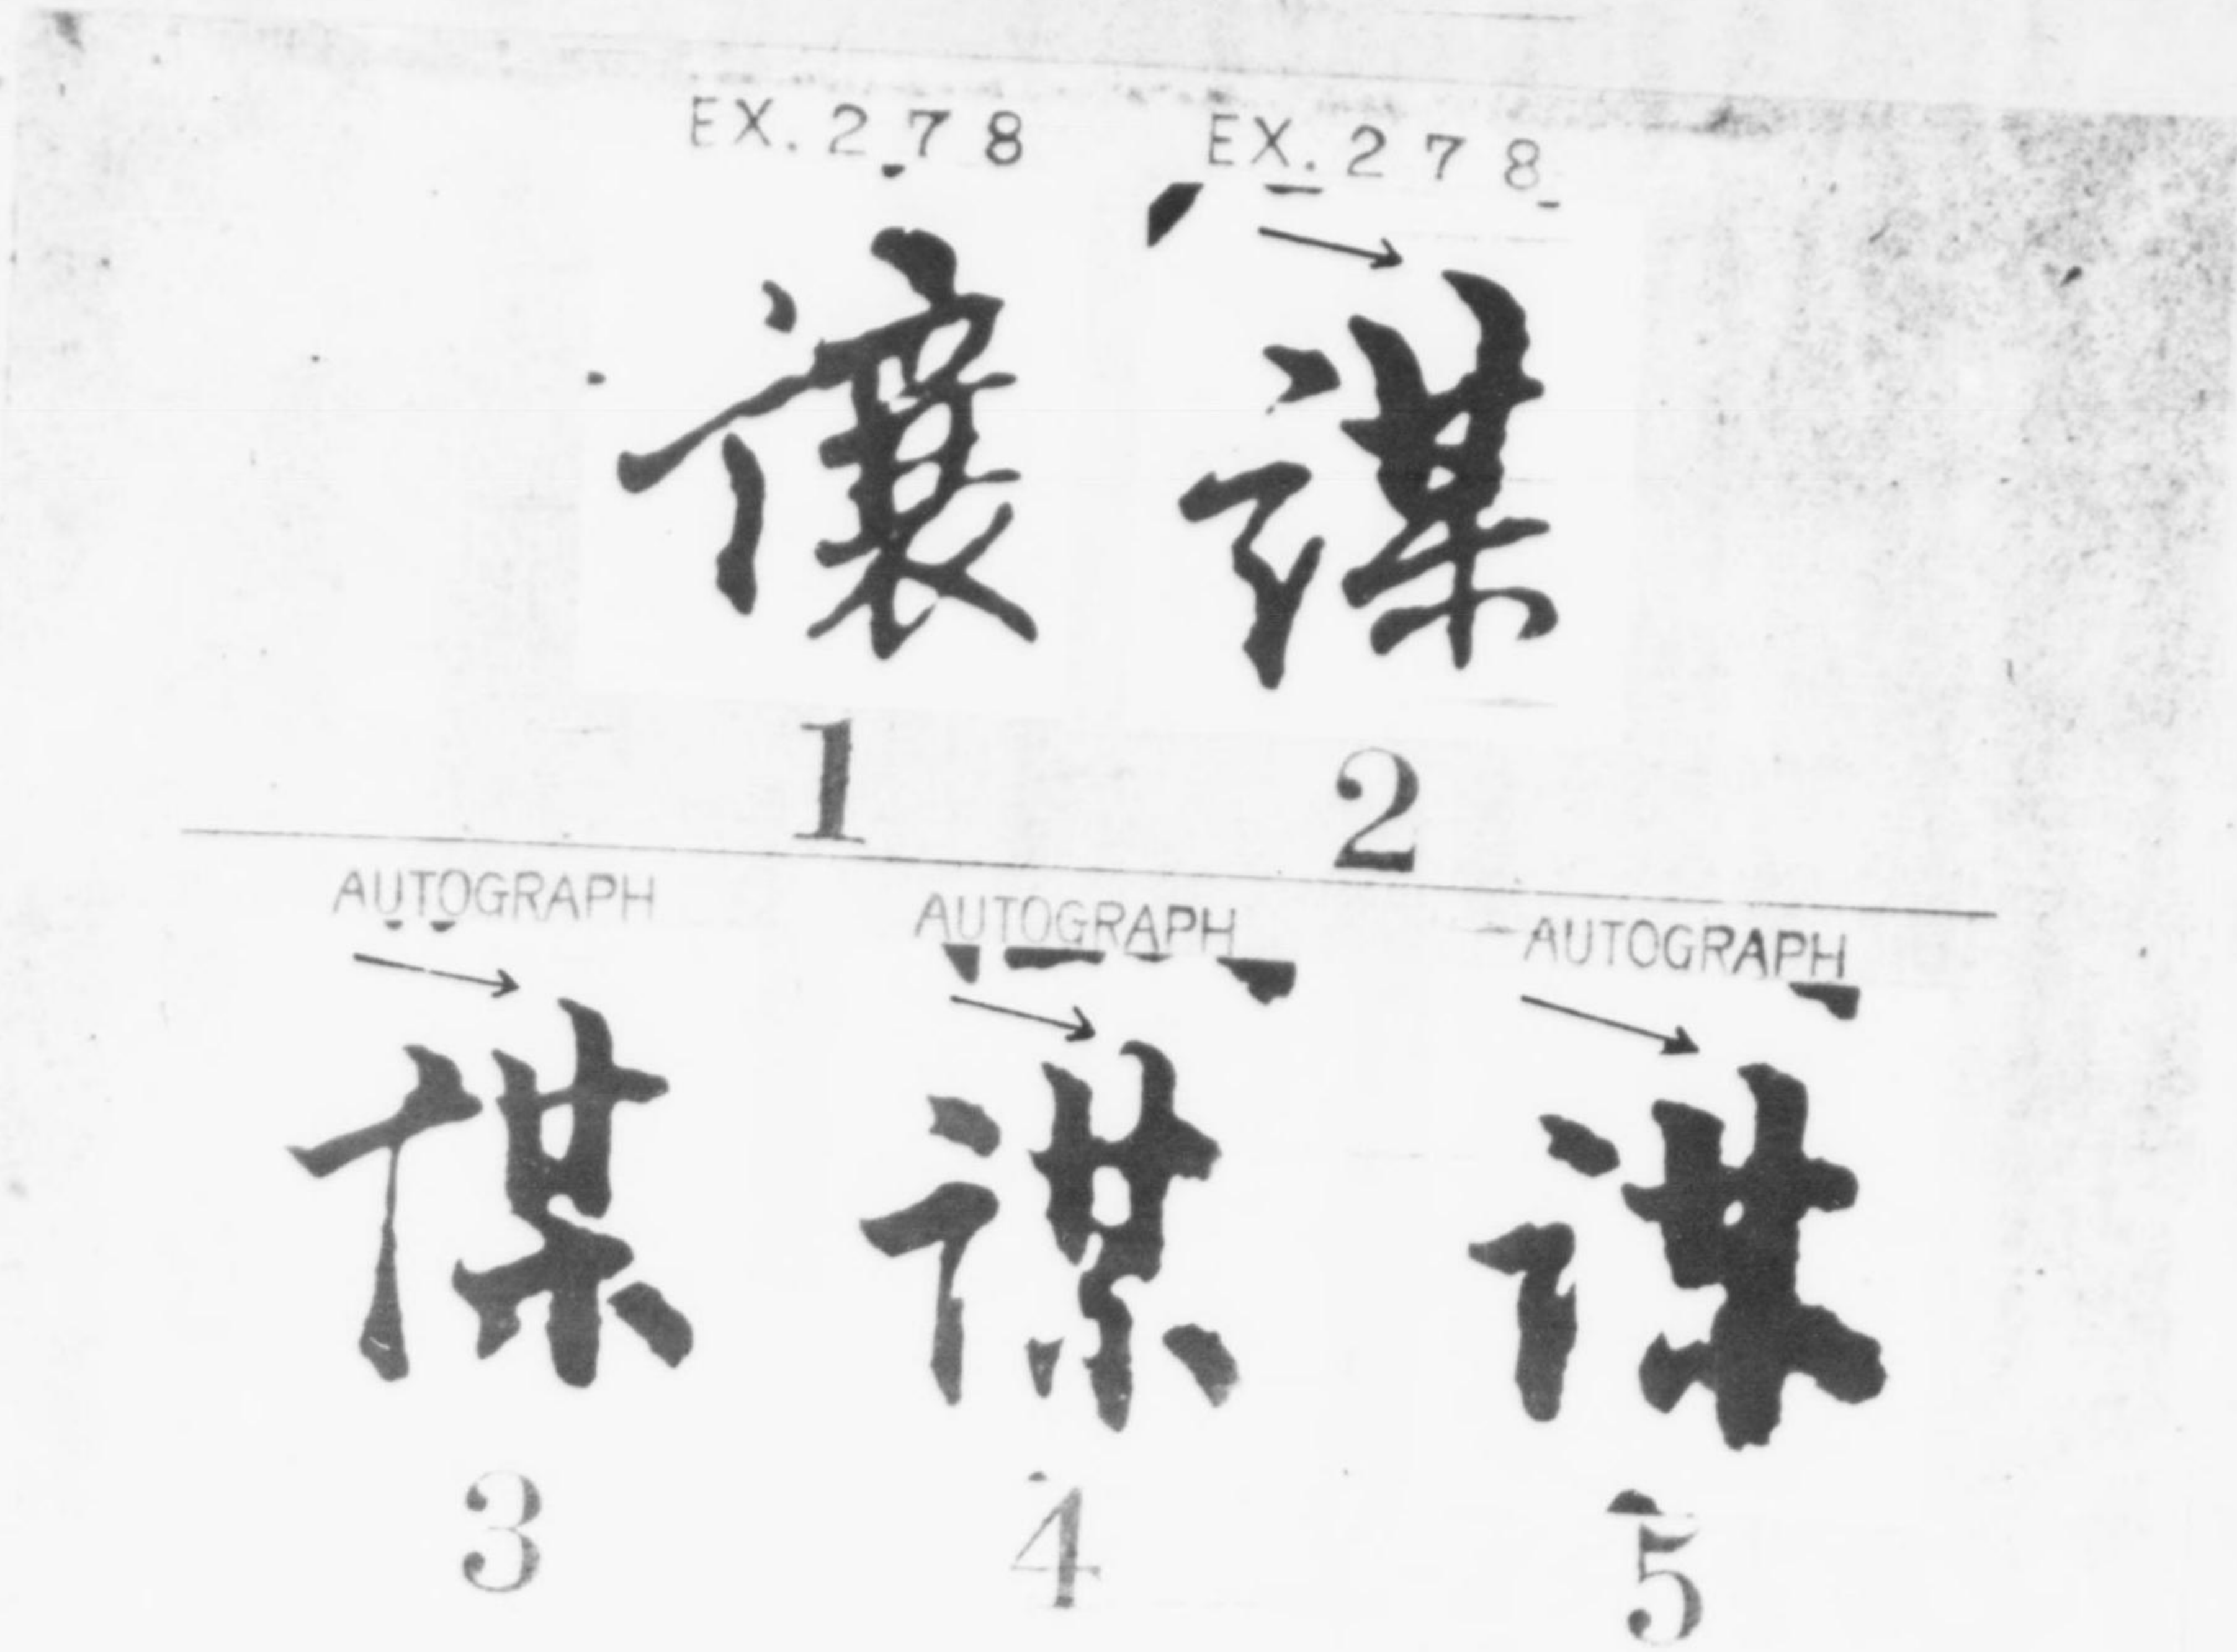 EX. 278 EX. 278
讓 謀
1 2
AUTOGRAPH AUTOGRAPH AUTOGRAPH
謀 謀 謀
3 4 5